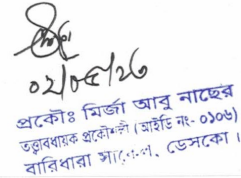 ০২/০৫/২৩
প্রকৌঃ মির্জা আবু নাছের
তত্ত্বাবধায়ক প্রকৌশলী (আইডি নং- ০১০৬)
বারিধারা সার্কেল, ডেসকো।